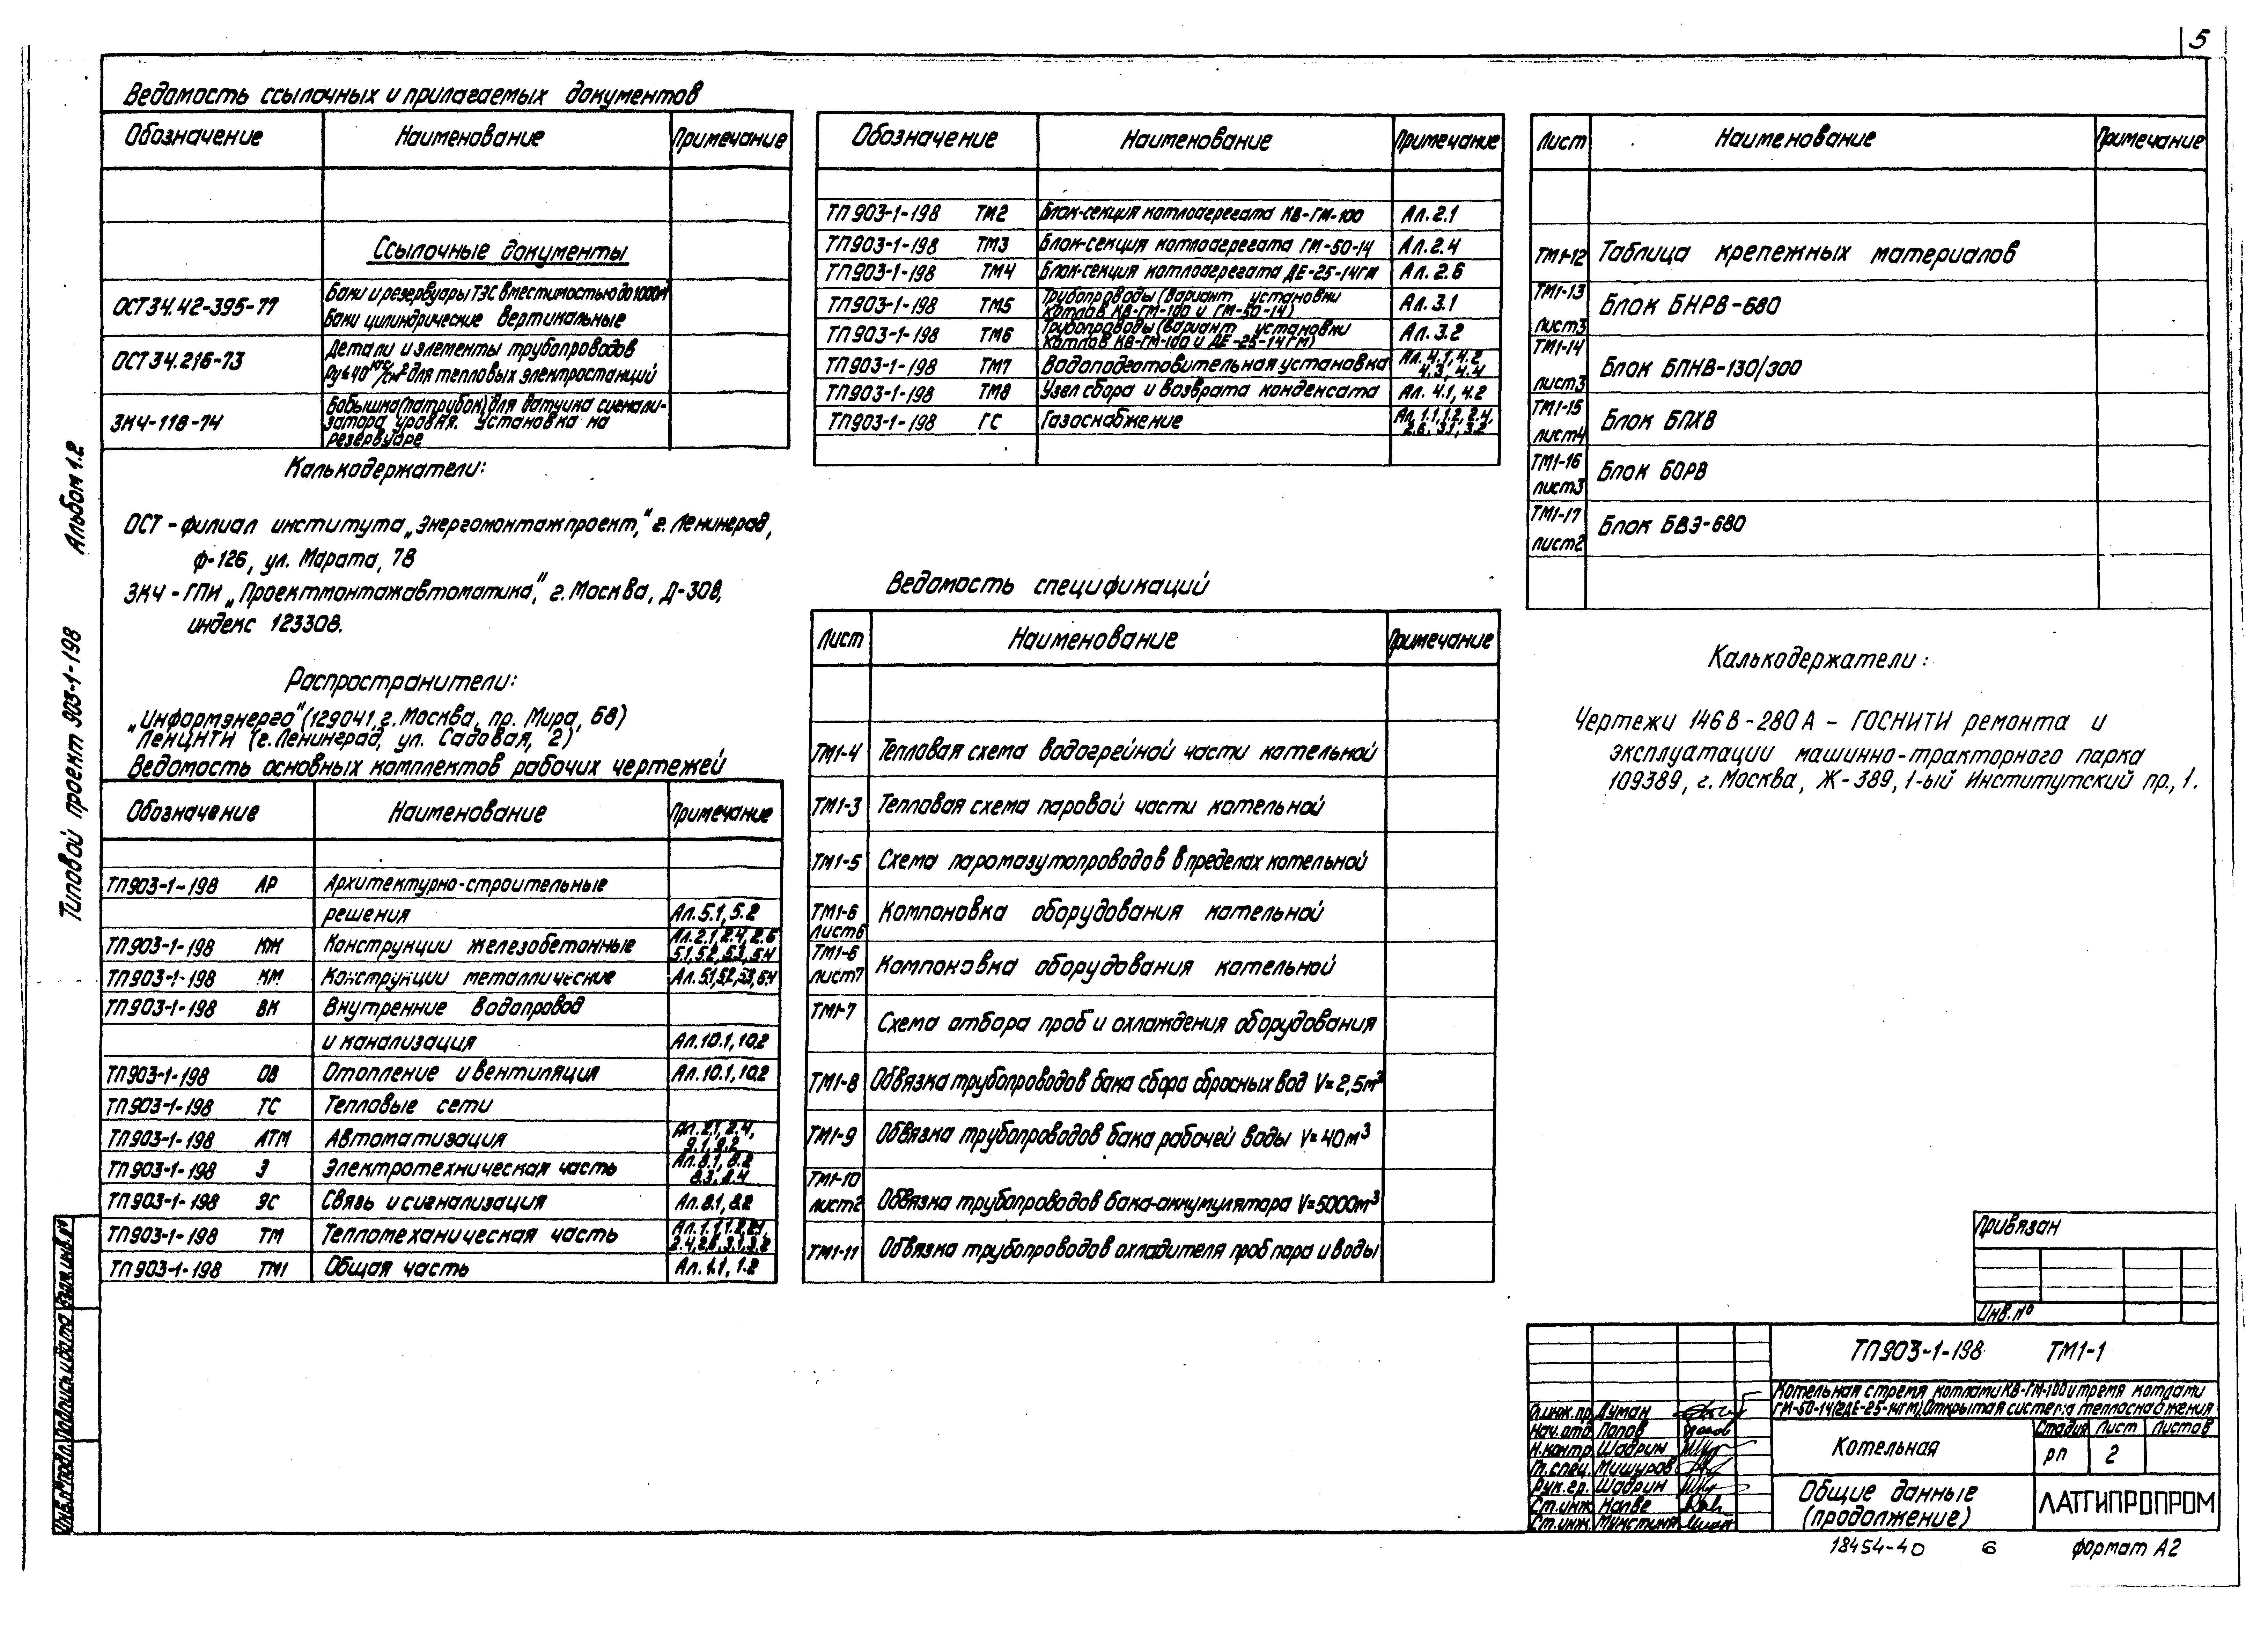 5
Ведомость ссылочных и прилагаемых документов
Обозначение Наименование Примечание
Ссылочные документы
ОСТ 34.42-395-77 Баки и резервуары ТЭС вместимостью до 1000м³
Баки цилиндрические вертикальные
ОСТ 34.216-73 Детали и элементы трубопроводов
Ру≤40 кгс/см² для тепловых электростанций
ЗК4-118-74 Бобышка (патрубок) для датчика сигнали-
затора уровня. Установка на
резервуаре
Калькодержатели:
ОСТ - филиал института „Энергомонтажпроект," г. Ленинград,
Ф-126, ул. Марата, 78
ЗК4 - ГПИ „Проектмонтажавтоматика", г. Москва, Д-308,
индекс 123308.
Распространители:
„Информэнерго" (129041, г. Москва, пр. Мира, 68)
"ЛЕНЦНТИ (г. Ленинград, ул. Садовая, 2)
Ведомость основных комплектов рабочих чертежей
Обозначение Наименование Примечание
ТП903-1-198 АР Архитектурно-строительные
решения Ал.5.1, 5.2
ТП903-1-198 КЖ Конструкции железобетонные Ал.2.1, 2.4, 2.6
5.1, 5.2, 5.3, 5.4
ТП903-1-198 КМ Конструкции металлические Ал.5.1, 5.2, 5.3, 5.4
ТП903-1-198 ВК Внутренние водопровод
и канализация Ал.10.1, 10.2
ТП903-1-198 ОВ Отопление и вентиляция Ал.10.1, 10.2
ТП903-1-198 ТС Тепловые сети
ТП903-1-198 АТМ Автоматизация Ал.2.1, 2.4,
9.1, 9.2
ТП903-1-198 Э Электротехническая часть Ал.8.1, 8.2
8.3, 8.4
ТП903-1-198 ЭС Связь и сигнализация Ал.8.1, 8.2
ТП903-1-198 ТМ Тепломеханическая часть Ал.1.1, 1.2, 2.1,
2.4, 2.6, 3.1, 3.2
ТП903-1-198 ТМ1 Общая часть Ал.1.1, 1.2
Обозначение Наименование Примечание
ТП903-1-198 ТМ2 Блок-секция котлоагрегата КВ-ГМ-100 Ал. 2.1
ТП903-1-198 ТМ3 Блок-секция котлоагрегата ГМ-50-14 Ал. 2.4
ТП903-1-198 ТМ4 Блок-секция котлоагрегата ДЕ-25-14ГМ Ал. 2.6
ТП903-1-198 ТМ5 Трубопроводы (вариант установки
котлов КВ-ГМ-100 и ГМ-50-14) Ал. 3.1
ТП903-1-198 ТМ6 Трубопроводы (вариант установки
котлов КВ-ГМ-100 и ДЕ-25-14ГМ) Ал. 3.2
ТП903-1-198 ТМ7 Водоподготовительная установка Ал. 4.1, 4.2
4.3, 4.4
ТП903-1-198 ТМ8 Узел сбора и возврата конденсата Ал. 4.1, 4.2
ТП903-1-198 ГС Газоснабжение Ал. 1.1, 1.2, 2.4,
2.6, 3.1, 3.2
Ведомость спецификаций
Лист Наименование Примечание
ТМ1-4 Тепловая схема водогрейной части котельной
ТМ1-3 Тепловая схема паровой части котельной
ТМ1-5 Схема паромазутопроводов в пределах котельной
ТМ1-6 Компоновка оборудования котельной
лист6
ТМ1-6 Компоновка оборудования котельной
лист7
ТМ1-7 Схема отбора проб и охлаждения оборудования
ТМ1-8 Обвязка трубопроводов бака сбора сбросных вод V=2,5м³
ТМ1-9 Обвязка трубопроводов бака рабочей воды V=40м³
ТМ1-10
лист2 Обвязка трубопроводов бака-аккумулятора V=5000м³
ТМ1-11 Обвязка трубопроводов охладителя проб пара и воды
Лист Наименование Примечание
ТМ1-12 Таблица крепежных материалов
ТМ1-13 Блок БНРВ-680
лист3
ТМ1-14 Блок БПНВ-130/300
лист3
ТМ1-15 Блок БПХВ
лист4
ТМ1-16 Блок БОРВ
лист3
ТМ1-17 Блок БВЭ-680
лист2
Калькодержатели:
Чертежи 146В-280А - ГОСНИТИ ремонта и
эксплуатации машинно-тракторного парка
109389, г. Москва, Ж-389, 1-ый Институтский пр., 1.
Типовой проект 903-1-198 Альбом 1.2
Инв.№подл. Подпись и дата Взам.инв.№
Привязан
Инв.№
ТП903-1-198 ТМ1-1
Котельная с тремя котлами КВ-ГМ-100 и тремя котлами
ГМ-50-14(2ДЕ-25-14ГМ). Открытая система теплоснабжения
Гл.инж.пр. Думан
Нач.отд. Попов
Н.контр. Шадрин
Гл.спец. Мишуров
Рук.гр. Шадрин
Ст.инж. Калве
Ст.инж. Мукстиня
Котельная
Стадия Лист Листов
рп 2
Общие данные
(продолжение)
ЛАТГИПРОПРОМ
18454-40 6 формат А2